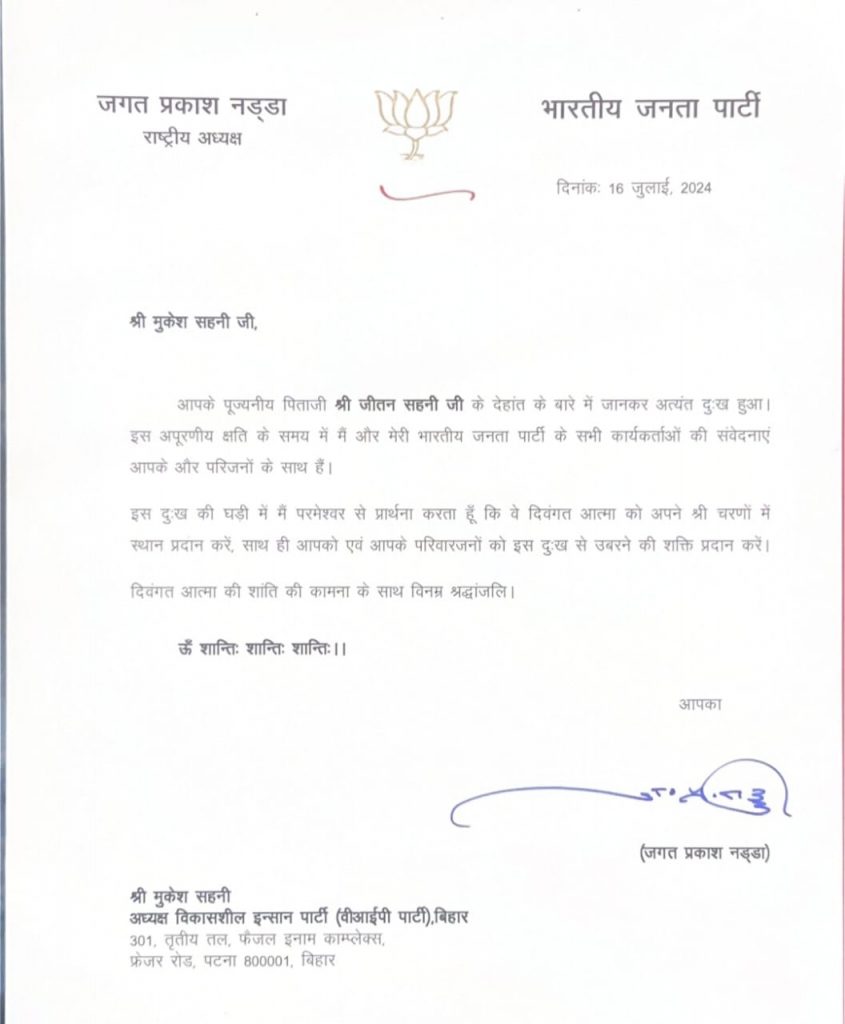 जगत प्रकाश नड्डा
राष्ट्रीय अध्यक्ष
भारतीय जनता पार्टी
दिनांकः 16 जुलाई, 2024
श्री मुकेश सहनी जी,
आपके पूज्यनीय पिताजी श्री जीतन सहनी जी के देहांत के बारे में जानकर अत्यंत दुःख हुआ।
इस अपूरणीय क्षति के समय में मैं और मेरी भारतीय जनता पार्टी के सभी कार्यकर्ताओं की संवेदनाएं
आपके और परिजनों के साथ हैं।
इस दुःख की घड़ी में मैं परमेश्वर से प्रार्थना करता हूँ कि वे दिवंगत आत्मा को अपने श्री चरणों में
स्थान प्रदान करें, साथ ही आपको एवं आपके परिवारजनों को इस दुःख से उबरने की शक्ति प्रदान करें।
दिवंगत आत्मा की शांति की कामना के साथ विनम्र श्रद्धांजलि।
ऊँ शान्तिः शान्तिः शान्तिः।।
आपका
(जगत प्रकाश नड्डा)
श्री मुकेश सहनी
अध्यक्ष विकासशील इन्सान पार्टी (वीआईपी पार्टी),बिहार
301, तृतीय तल, फैजल इनाम काम्प्लेक्स,
फ्रेजर रोड, पटना 800001, बिहार